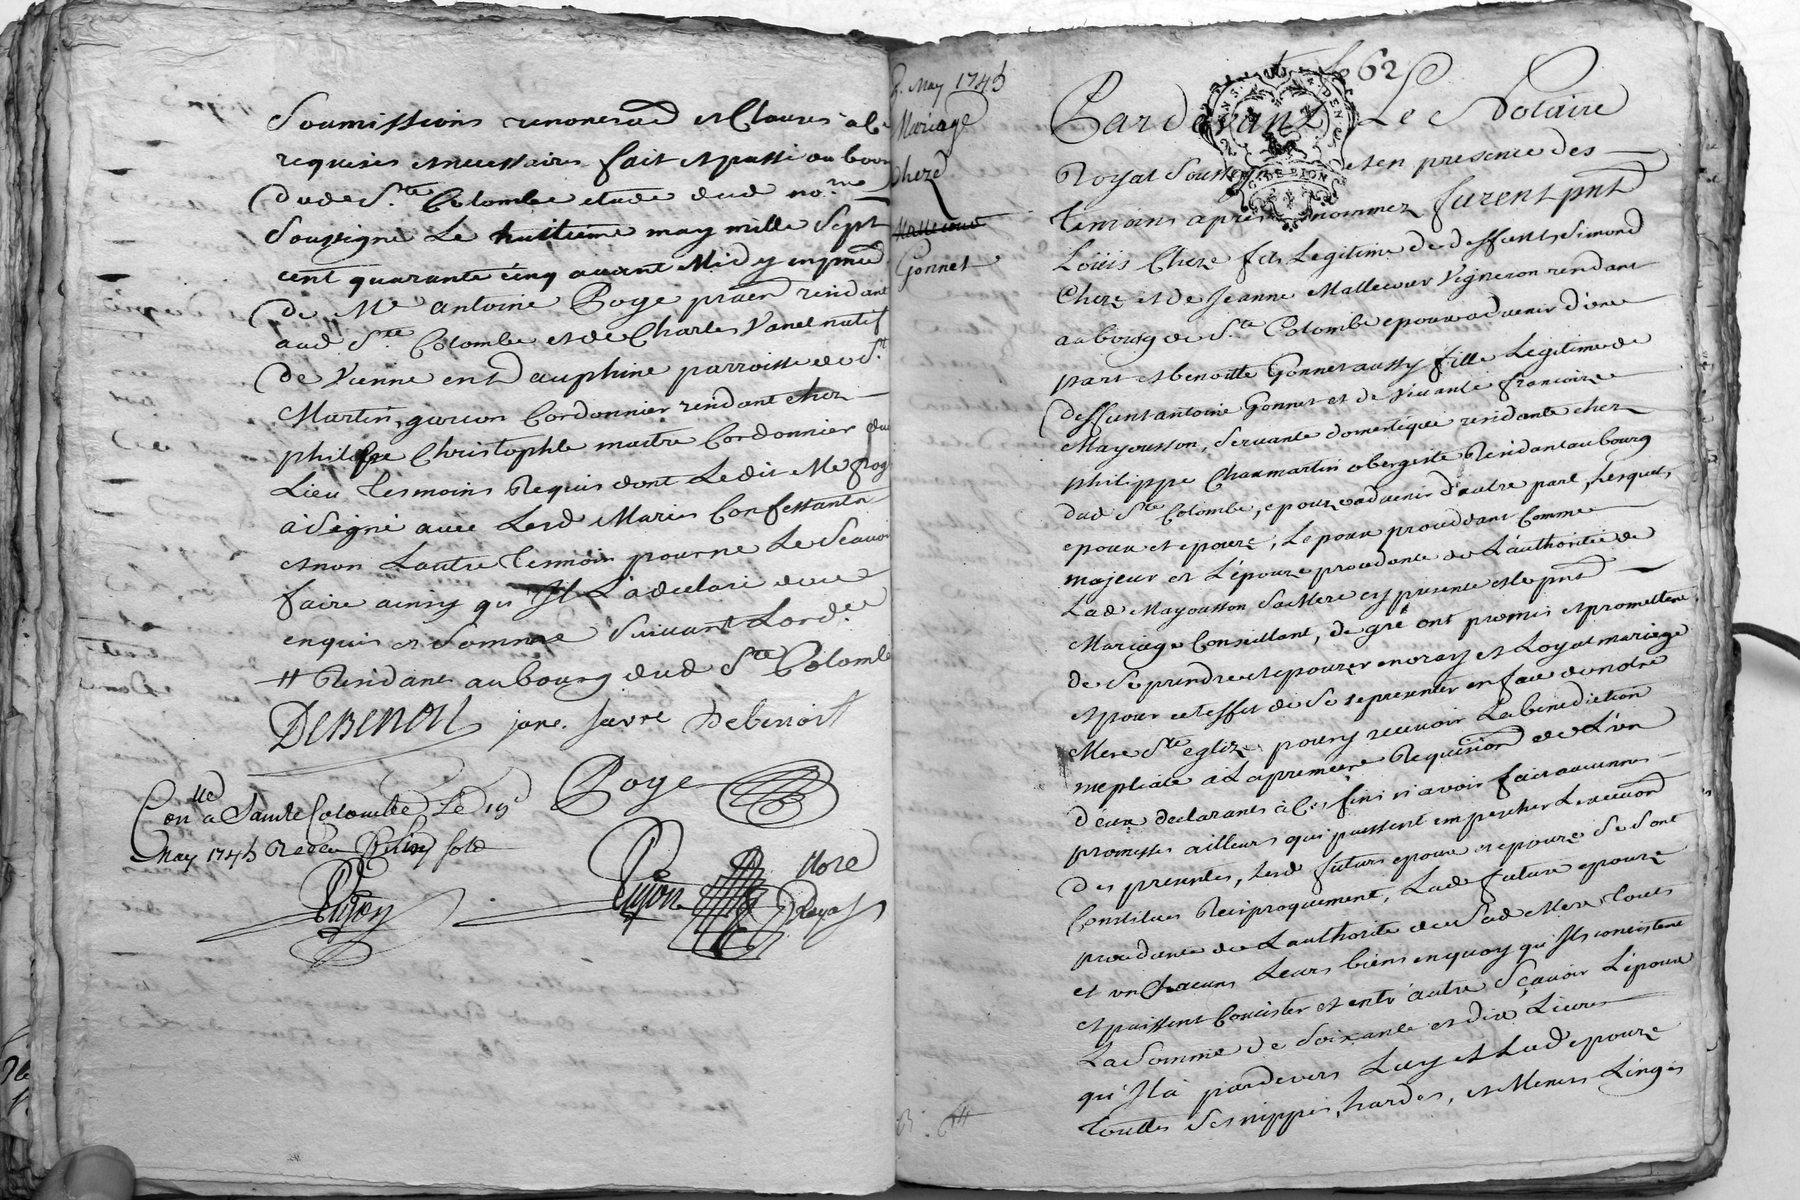 Soumissions renonciaōn et Clauses à Ce
requises et necessaires fait et passé au bourg
dud Ste Colombe etude dud no.re
Soussigné Le huitieme may mille Sept
cent quarante cinq avant Midy en pnce
de Me antoine Boye praēn residant
aud Ste Colombe et de Charles Vanel natif
de Vienne en Dauphine parroisse de St
Martin, garcon Cordonnier residant chez
philipe Christophle maitre Cordonnier dud
Lieu Tesmoins Requis dont Ledit Me Boye
à Signé avec Lesd Maries Confessants
et non L'autre Tesmoin pour ne Le Scavoir
faire ainsy qu'Il L'a declaré de ce
enquis et Sommé Suivant Lord.ce
# Residant au bourg dud Ste Colombe
DEBENOIT jane. favre Debenoist
Boye
Con.lle a Sainte Colombe Le 19e
May 1745 Reçeu
Pujon
Pujon
Nore
Royal
8. May 1745
Mariage
Cheze
Mallecour
Gonnet
62
Pardevant Le Notaire
Royal Soussigné et en presence des
temoins apres nommez furent pnts
Loüis Cheze fils Legitime de deffunt Simond
Cheze et de Jeanne Mallecour Vigneron residant
au bourg de Ste Colombe epoux advenir d'une
part et benoitte Gonnet aussy fille Legitime de
deffunt antoine Gonnet et de vivante francoise
Mayousson, Servante domestique residante chez
philippe Charmartin obergiste Residant au bourg
dud Ste Colombe, epouze advenir d'autre part, Lesquels
epoux et epouze, Lepoux proceddant Comme
majeur et L'épouze proceddante de L'authorité de
Lad Mayousson Sa Mere cy presente et le pnt
Mariage Consentant, de gré ont promis et promettent
de Se prendre et epouzer en vray et Loyal mariage
et pour cet effet de Se representer en face de notre
Mere Ste eglize pour y recevoir La benediction
nuptiale a La premiere Requisition de L'un
d'eux declarants à Ces fins n'avoir fait aucunes
promesses ailleurs qui puissent empecher Lexecution
des presentes, Lesd futurs epoux et epouze Se Sont
Constitués Reciproquement, Lad future epouze
procedante de L'authorité de Sad Mere touts
et un Chacuns Leurs biens en quoy qu'Ils consistent
et puissent Consister et entr'autre Sçavoir L'époux
La Somme de Soixante et dix Livres
qu'Il à pardevers Luy et Lad epouze
touttes Ses nippes, hardes, et Menus Linges